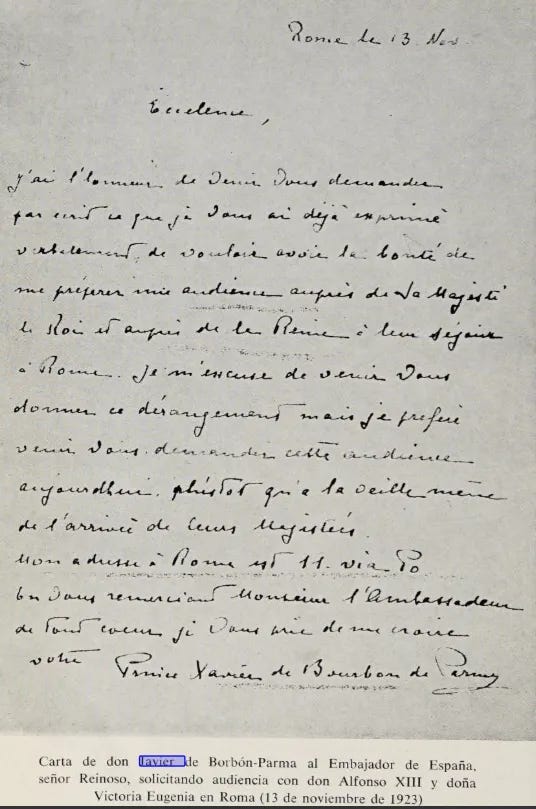 Rome le 13 Nov.
Excelence,
J'ai l'honneur de venir vous demander
par ecrit ce que je vous ai déjà exprimé
verbalement, de vouloir avoir la bonté de
me préparer une audience auprès de Sa Majesté
le Roi et auprès de la Reine à leur séjour
à Rome. Je m'excuse de venir vous
donner ce dérangement mais je préfère
venir vous demander cette audience
aujourdhui, plustot qu'a la veille même
de l'arrivée de leurs Majestées.
Mon adresse à Rome est 11. via Po
En vous remerciant Monsieur l'Ambassadeur
de tout coeur je vous prie de me croire
votre Prince Xavier de Bourbon de Parme
Carta de don Javier de Borbón-Parma al Embajador de España,
señor Reinoso, solicitando audiencia con don Alfonso XIII y doña
Victoria Eugenia en Roma (13 de noviembre de 1923)